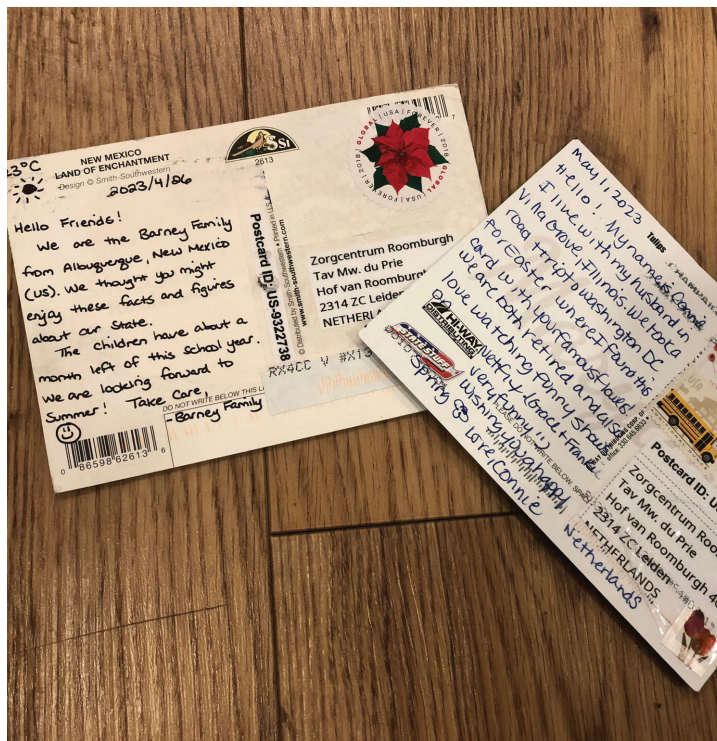 3°C
NEW MEXICO
LAND OF ENCHANTMENT
Design © Smith-Southwestern
2023/4/26
Hello Friends!
We are the Barney Family
from Albuquerque, New Mexico
(US). We thought you might
enjoy these facts and figures
about our State.
The Children have about a
month left of this school year.
We are looking forward to
Summer! Take Care,
-Barney Family
DO NOT WRITE BELOW THIS LI
0 86598 62613 6
SSI
2613
Postcard ID: US-9322738
© Distributed by Smith-Southwestern • Printed in U.S.
www.smith-southwestern.com
GLOBAL | USA | FOREVER | 2018
GLOBAL USA | FOREVER | 2018
7
Zorgcentrum Roomburgh
Tav Mw. du Prie
Hof van Roomburgh
2314 ZC Leiden
NETHERL
RX4CC V #X13
May 1, 2023
Hello! My name is Connie
I live with my husband in
Villa Grove, Illinois. We took a
road trip to Washington DC
for Easter where I found this
card with your famous flowers.
We are both retired and also
love watching funny shows
on Netflix (Grace & Frankie
Very Funny!!)
Wishing you a happy
Spring
Love, Connie
Tulips
HI-WAY
DISTRIBUTING
STATE STUFF
PLEASE DO NOT WRITE BELOW SPACE
Postcard ID: U
Zorgcentrum Roo
Tav Mw. du Prie
Hof van Roomburgh 4
2314 ZC Leiden
NETHERLANDS
Netherlands